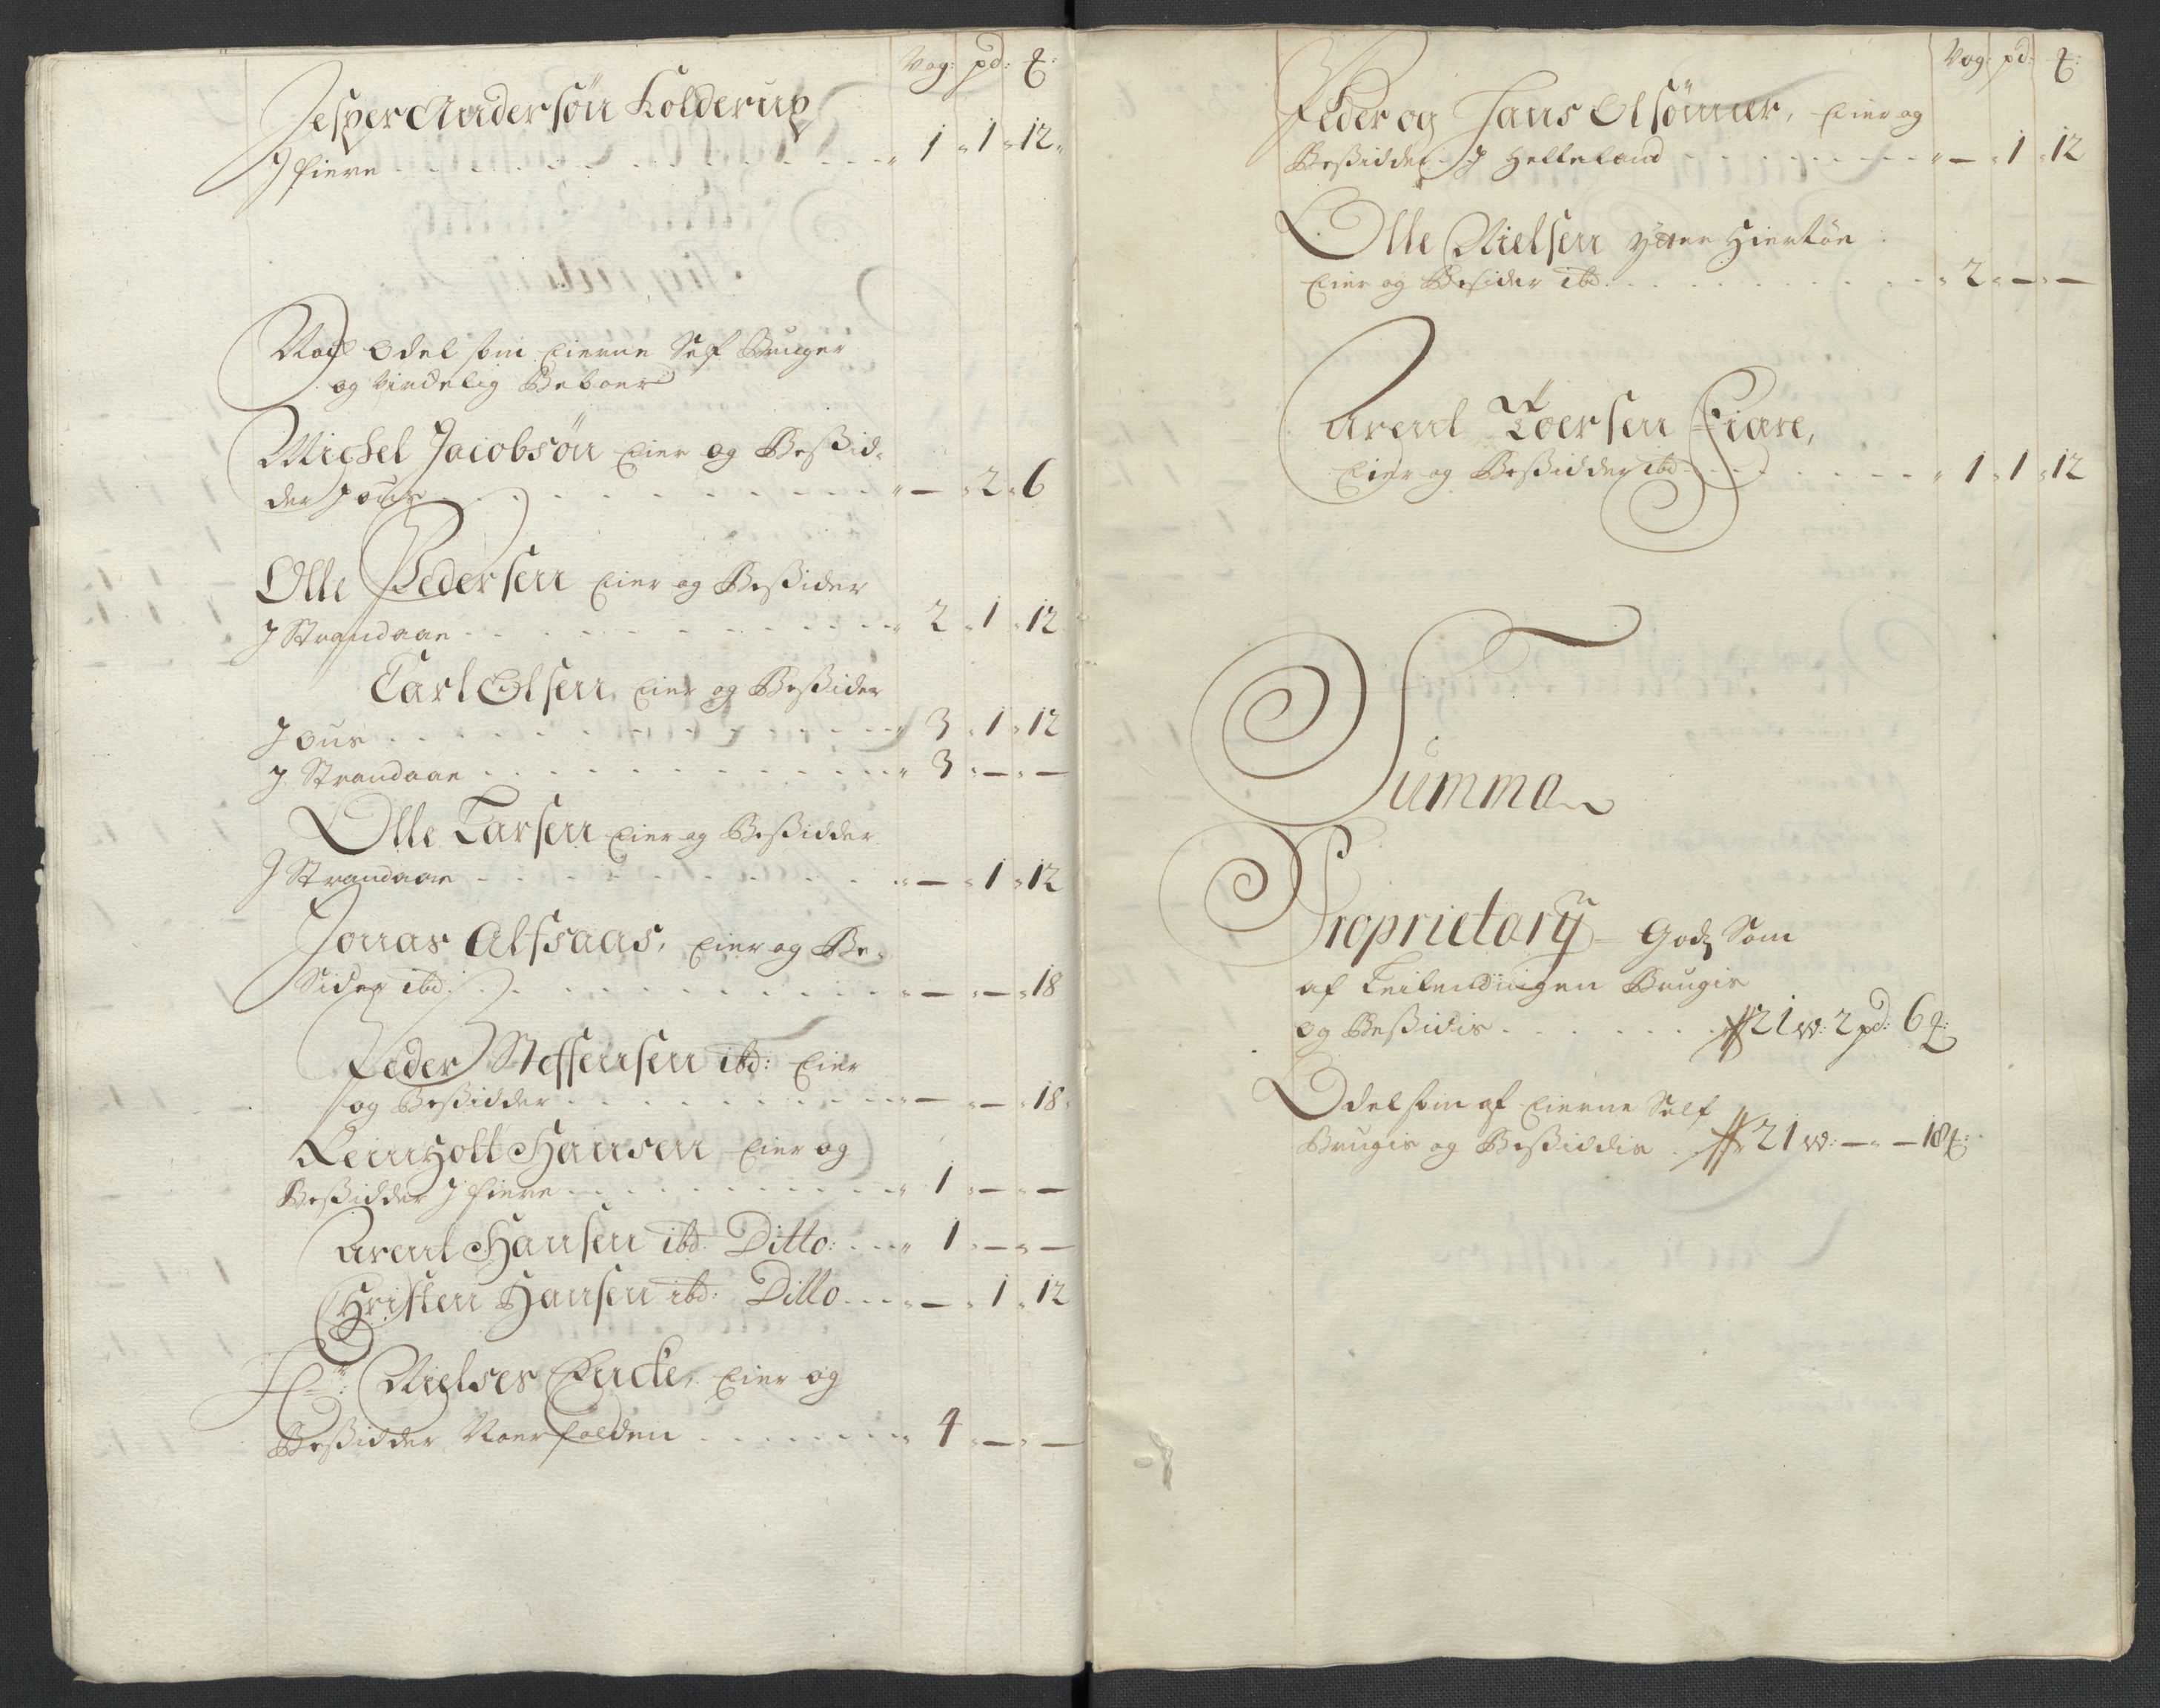 Vog: pd: ꝑ:
Jesper Andersön Kolderup
J fiere . . . . . . 1 . 1 . 12
Noch Odel som Eierne Self Bruger
og Virckelig Beboer
Michel Jacobsön Eier og Beßid-
der J ous . . . . . . — . 2 . 6
Olle Pedersen Eier og Beßider
J Strandaae . . . . . . 2 . 1 . 12
Carl Olsen, Eier og Beßider
J ous . . . . . . 3 . 1 . 12
J Strandaae . . . . . . 3 . — . —
Olle Larsen Eier og Beßidder
J Strandaae . . . . . . — . 1 . 12
Jonas Alfsaas, Eier og Be-
Sider ibd: . . . . . . — . — . 18
Peder Steffensen ibd: Eier
og Beßidder . . . . . . — . — . 18
Reinholt Hansen Eier og
Beßidder J fiere . . . . . . 1 . — . —
Arent Hansen ibd: Ditto: . . . 1 . — . —
Christen Hansen ibd: Ditto . . . — . 1 . 12
Hr: Nielses Encke, Eier og
Beßidder Noerfolden . . . . . . 4 . — . —
Vog: pd: ꝑ:
Peder og Hans Olsönner, Eier og
Beßidder J Helleland . . . . . . — . 1 . 12
Olle Nielsen Ytter Hiertöe
Eier og Besider ibd: . . . . . . 2 . — . —
Arent Toersen Fiære,
Eier og Beßidder ibd: . . . . . . 1 . 1 . 12
Summa
Proprietarÿ Godz Som
af Leilendingen Brugis
og Beßidis . . . . . . 21 w: 2 pd: 6 ꝑ:
Odel som af Eierne Self
Brugis og Beßiddis . 21 w: — . — 18 ꝑ: